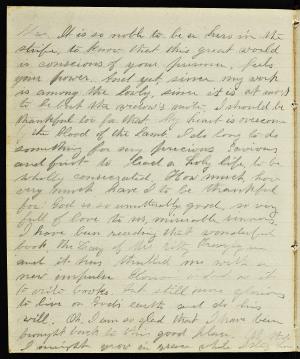 It is so noble to be a hero in the
strife, to know that this great world
is conscious of your presence, feels
your power. And yet, since my work
is among the lowly, since it is at most
to be but the widow's mite, I should be
thankful too for that. My heart is overcome
the blood of the Lamb. I do long to do
something for my precious Saviour
and first to lead a holy life, to be
wholly consecrated. How much how
very much have I to be thankful
for! God is so unutterably good, so very
full of love to us, miserable sinners.
I have been reading that wonderful
book
and it has thrilled me with a
new impulse
to write books. but still more glorious
to live on God's earth and do his
will. Oh, I am so glad that I have been
brought back to this good place.
I might grow in grace while